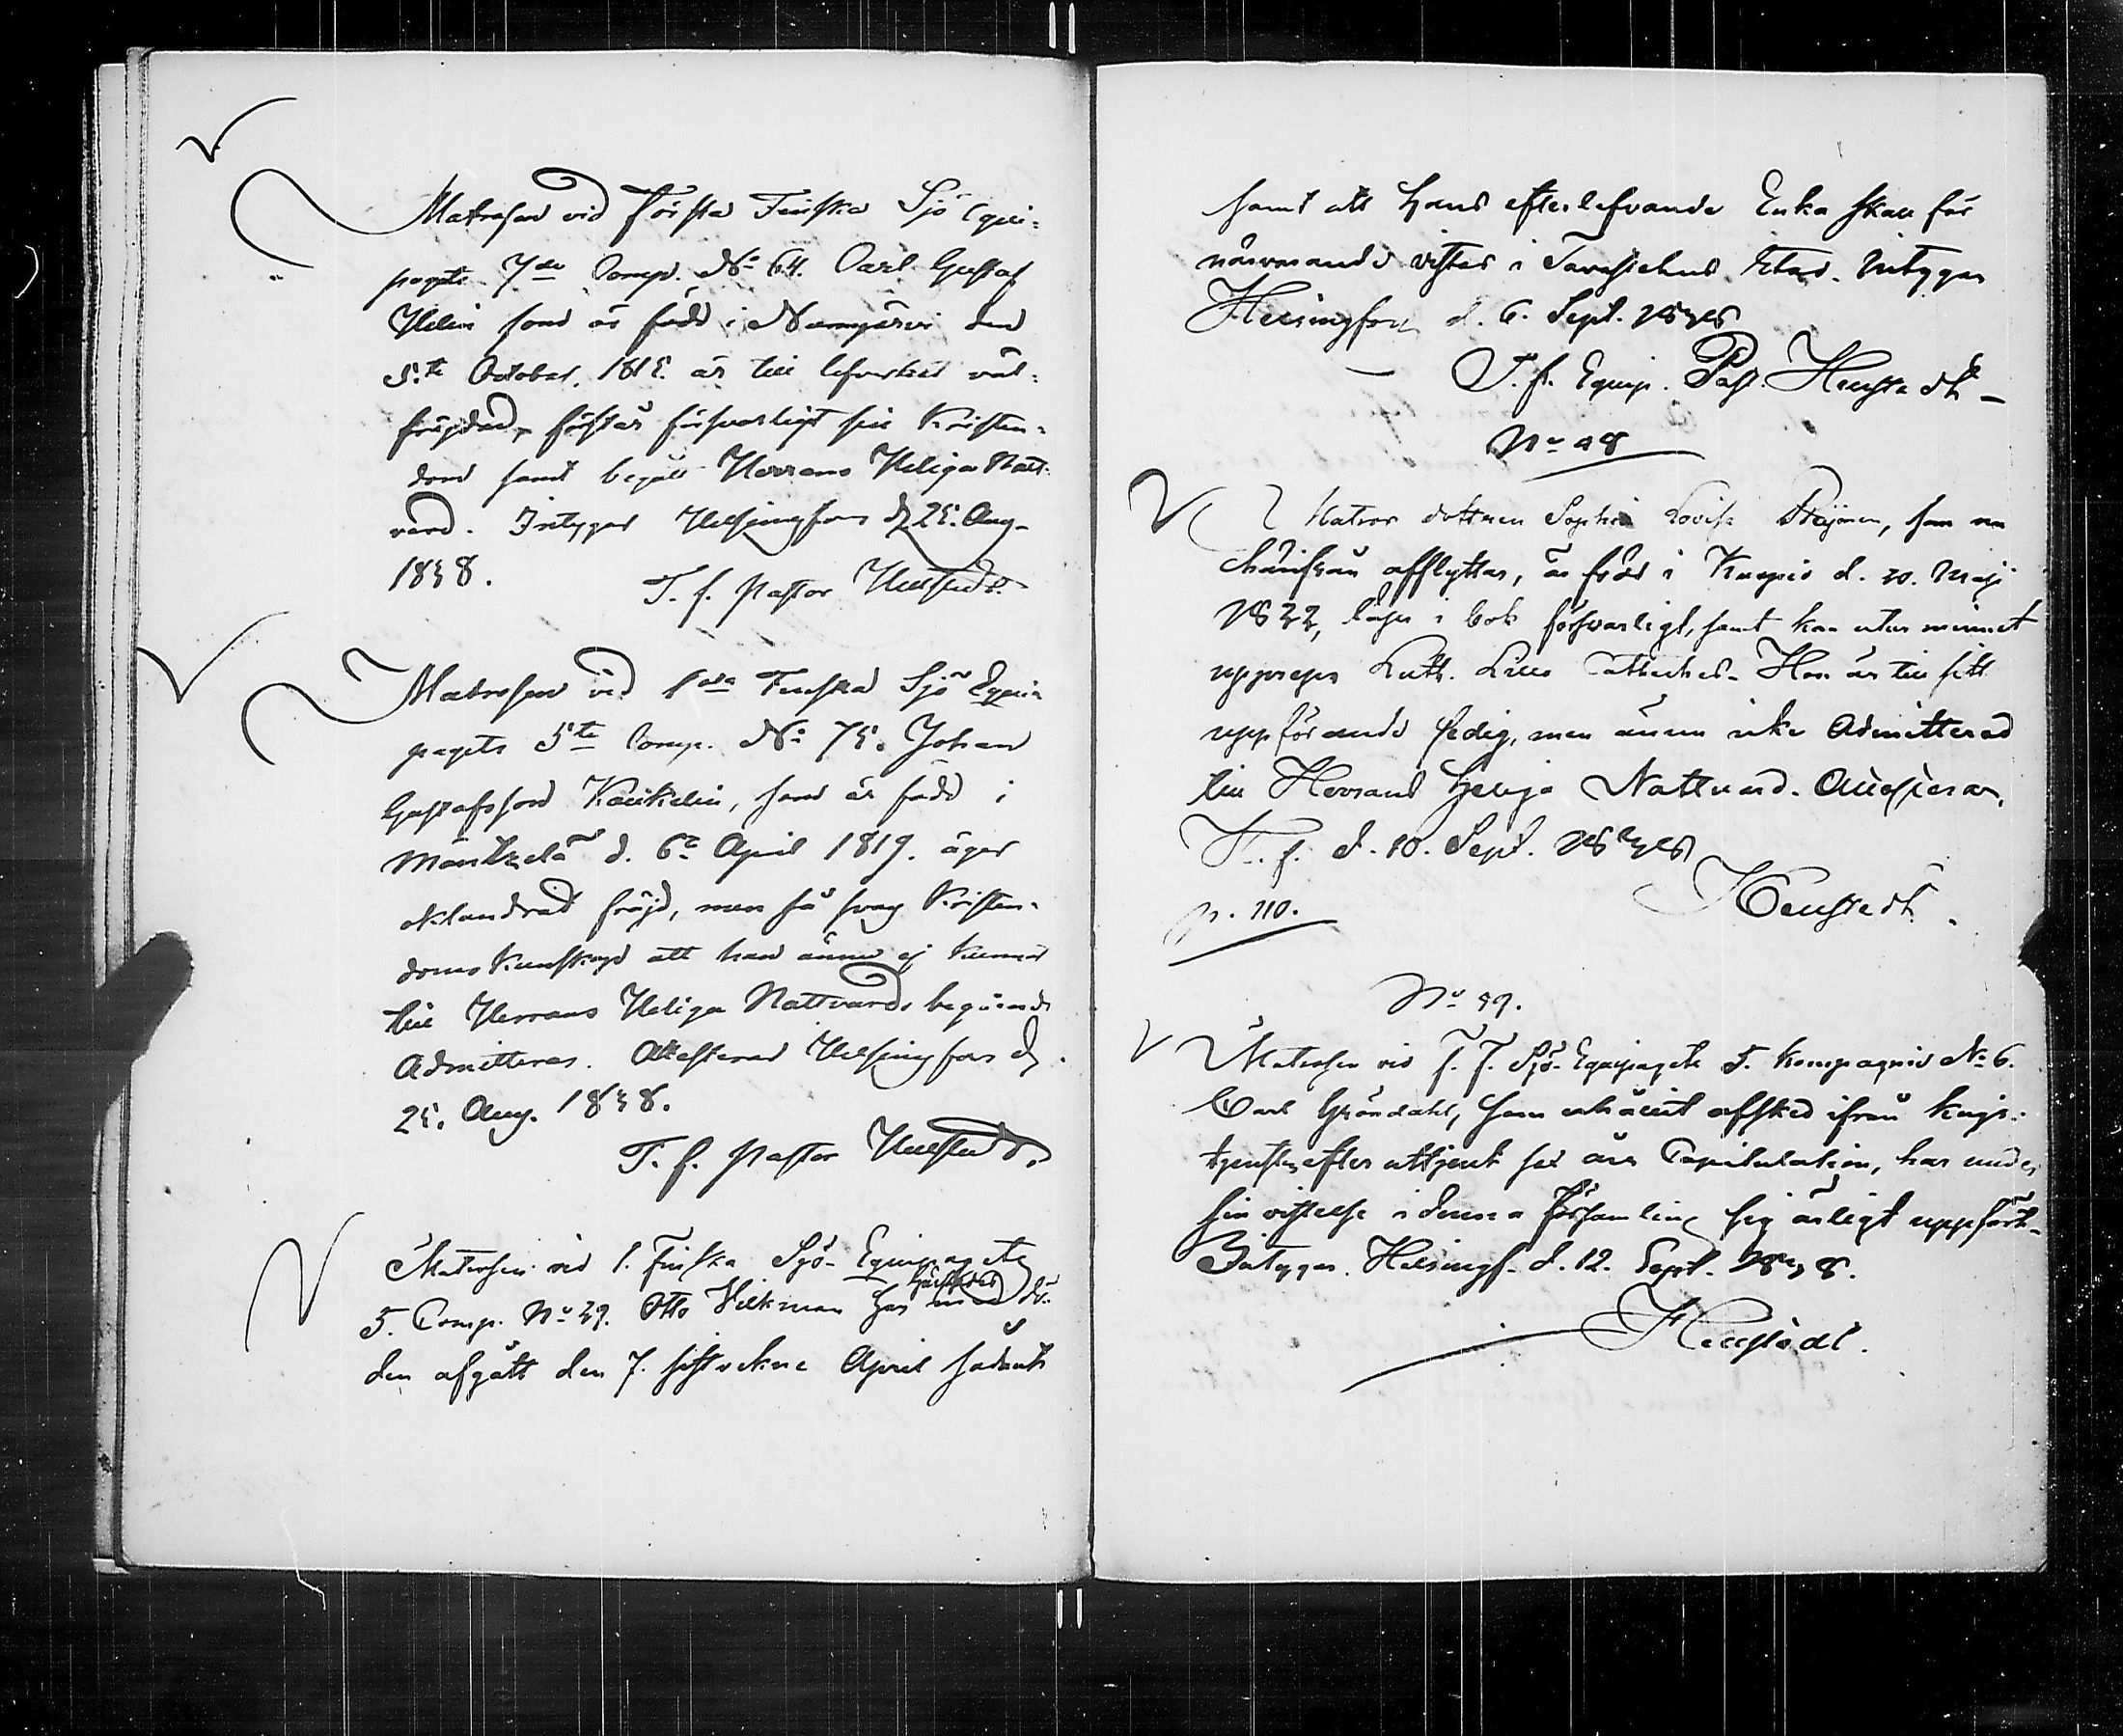 Matrosen vid Första Finska Sjö Equi-
pagets 7de Comp. No 64. Carl Gustaf
Helin som är född i Nummijärvi den
5.te October 181 är till lefvernet väl-
frägdad, förstår försvarligt sin Kristen-
dom samt begått Herrans Heliga Natt-
vard. Intygar Helsingfors d 25. Aug.
1838.
T. f. Pastor Hellstedt.
Matrosen vid 1sta Finska Sjö Equi-
pagets 5te Comp. No 75. Johan
Gustafsson Kaukelin, som är född i
Mäntzelä d. 6te April 1819. äger
oklandrad fräjd, men så svag Kristen-
doms kunskap att han ännu ej kunnat
till Herrans Heliga Nattvards begående
Admitteras. Attesterar Helsingfors d
25. Aug. 1838.
T. f. Pastor Hellstedt.
Matrosen vid 1. Finska Sjö-Equipagets
5. Comp. No 39. Otto Vilkman har med dö-
den afgått den 7. sistvekne April
samt att hans efterlefvande Enka skall för
närvarande vistas i Tavastehus Stad. Intygar
Helsingfors d. 6. Sept. 1838
T. f. Equip. Past. Hellstedt
No 48
Matros dottren Sophia Lovisa, som nu
härifrån afflyttar, är född i Kuopio d. 20. Maji
1822, läser i bok försvarligt, samt kan utur minnet
upprepa Luth. Lilla Catheches. Hon är till sitt
uppförande sedig, men ännu icke Admitterad
till Herrans Helga Nattvard. Attesterar,
H.f. d. 10. Sept. 1838
Hellstedt.
p. 110.
No 49.
Matrosen vid F. F. Sjö-Equipagets 5. Kompagnie No 6.
Carl Gröndahl, som erhållit afsked ifrån krigs-
tjensten efter uttjent sex års Capitulation, har under
sin vistelse i denna Församling sig ärligt uppfört.
Intygar. Helsingf. d. 12. Sept. 1838.
Hellstedt.